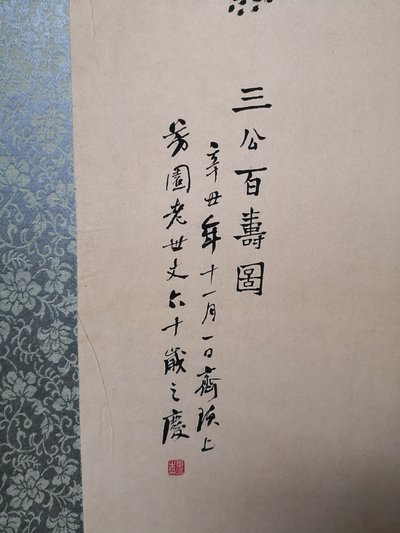 三公百壽圖
辛丑年十一月一日齊璜上
芳園老世丈六十歲之慶